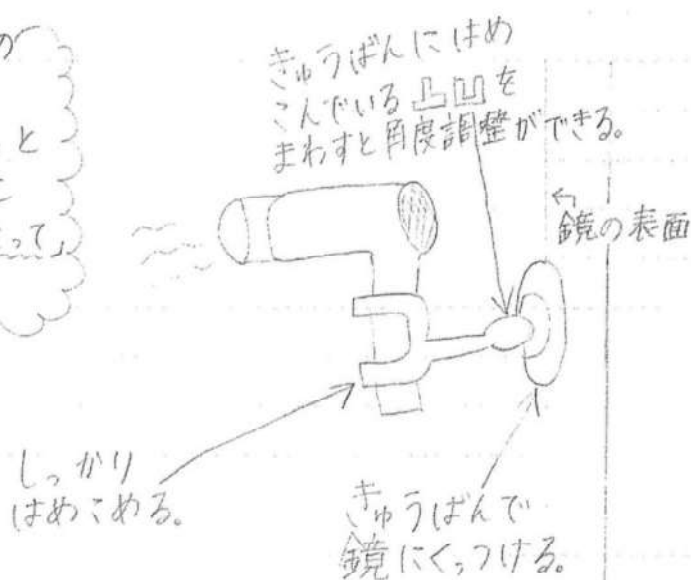 の
と
って」
きゅうばんにはめ
こんでいる凸凹を
まわすと角度調整ができる。
←
鏡の表面
しっかり
はめこめる。
きゅうばんで
鏡にくっつける。